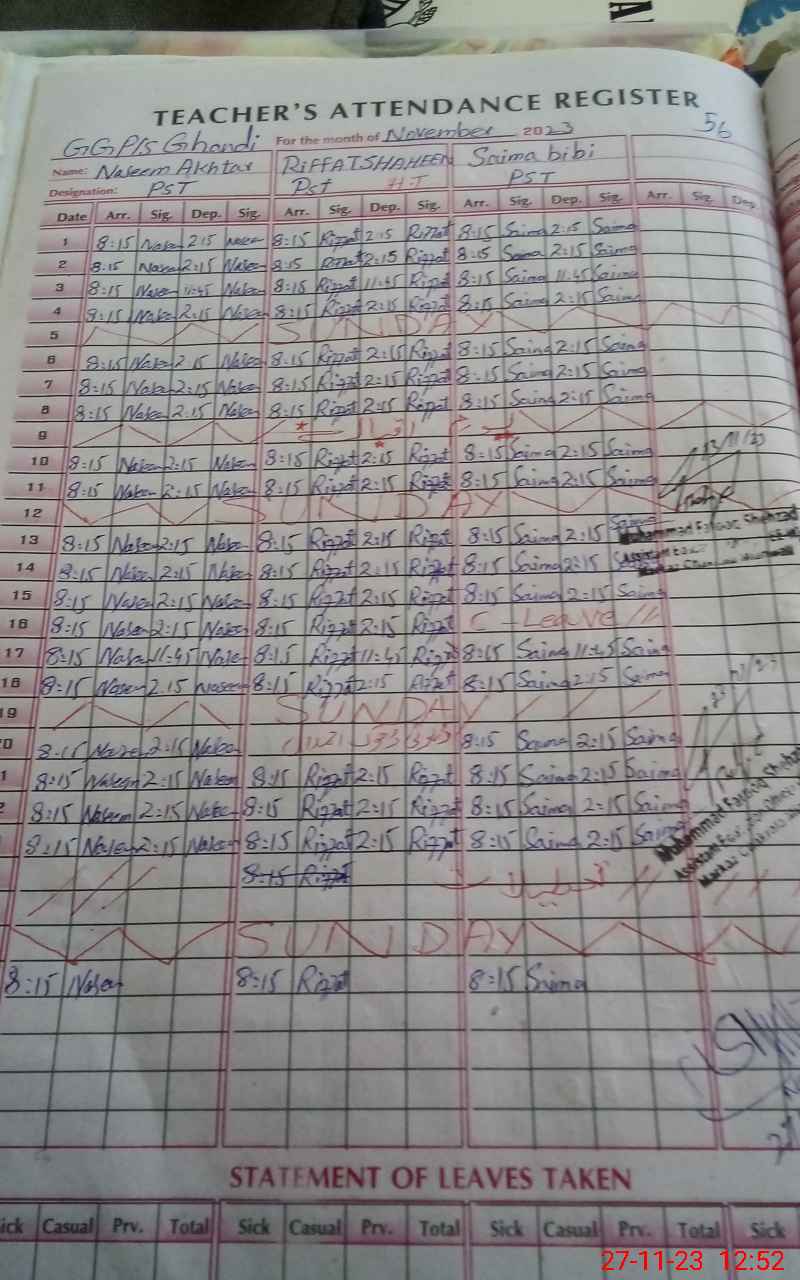 TEACHER'S ATTENDANCE REGISTER
56
GGP/s Ghondi For the month of November 2023
Name: Naseem Akhtar RIFFAT SHAHEEN Saima bibi
Designation: PST Pst H.T PST
Date Arr. Sig. Dep. Sig. Arr. Sig. Dep. Sig. Arr. Sig. Dep. Sig. Arr. Sig. Dep.
1 8:15 Naseem 2:15 Naseem 8:15 Riffat 2:15 Riffat 8:15 Saima 2:15 Saima
2 8:15 Naseem 2:15 Naseem 8:15 Riffat 2:15 Riffat 8:15 Saima 2:15 Saima
3 8:15 Naseem 11:45 Naseem 8:15 Riffat 11:45 Riffat 8:15 Saima 11:45 Saima
4 8:15 Naseem 2:15 Naseem 8:15 Riffat 2:15 Riffat 8:15 Saima 2:15 Saima
5 SUNDAY
6 8:15 Naseem 2:15 Naseem 8:15 Riffat 2:15 Riffat 8:15 Saima 2:15 Saima
7 8:15 Naseem 2:15 Naseem 8:15 Riffat 2:15 Riffat 8:15 Saima 2:15 Saima
8 8:15 Naseem 2:15 Naseem 8:15 Riffat 2:15 Riffat 8:15 Saima 2:15 Saima
9
10 8:15 Naseem 2:15 Naseem 8:15 Riffat 2:15 Riffat 8:15 Saima 2:15 Saima 13/11/23
11 8:15 Naseem 2:15 Naseem 8:15 Riffat 2:15 Riffat 8:15 Saima 2:15 Saima
12 SUNDAY
13 8:15 Naseem 2:15 Naseem 8:15 Riffat 2:15 Riffat 8:15 Saima 2:15 Saima
14 8:15 Naseem 2:15 Naseem 8:15 Riffat 2:15 Riffat 8:15 Saima 2:15 Saima
15 8:15 Naseem 2:15 Naseem 8:15 Riffat 2:15 Riffat 8:15 Saima 2:15 Saima
16 8:15 Naseem 2:15 Naseem 8:15 Riffat 2:15 Riffat C - Leave
17 8:15 Naseem 11:45 Naseem 8:15 Riffat 11:45 Riffat 8:15 Saima 11:45 Saima
18 8:15 Naseem 2:15 Naseem 8:15 Riffat 2:15 Riffat 8:15 Saima 2:15 Saima
19 SUNDAY
0 8:15 Naseem 2:15 Naseem 8:15 Saima 2:15 Saima
1 8:15 Naseem 2:15 Naseem 8:15 Riffat 2:15 Riffat 8:15 Saima 2:15 Saima
2 8:15 Naseem 2:15 Naseem 8:15 Riffat 2:15 Riffat 8:15 Saima 2:15 Saima
8:15 Naseem 2:15 Naseem 8:15 Riffat 2:15 Riffat 8:15 Saima 2:15 Saima
8:15 Riffat
SUNDAY
8:15 Naseem 8:15 Riffat 8:15 Saima
STATEMENT OF LEAVES TAKEN
ick Casual Prv. Total Sick Casual Prv. Total Sick Casual Prv. Total Sick
27-11-23 12:52